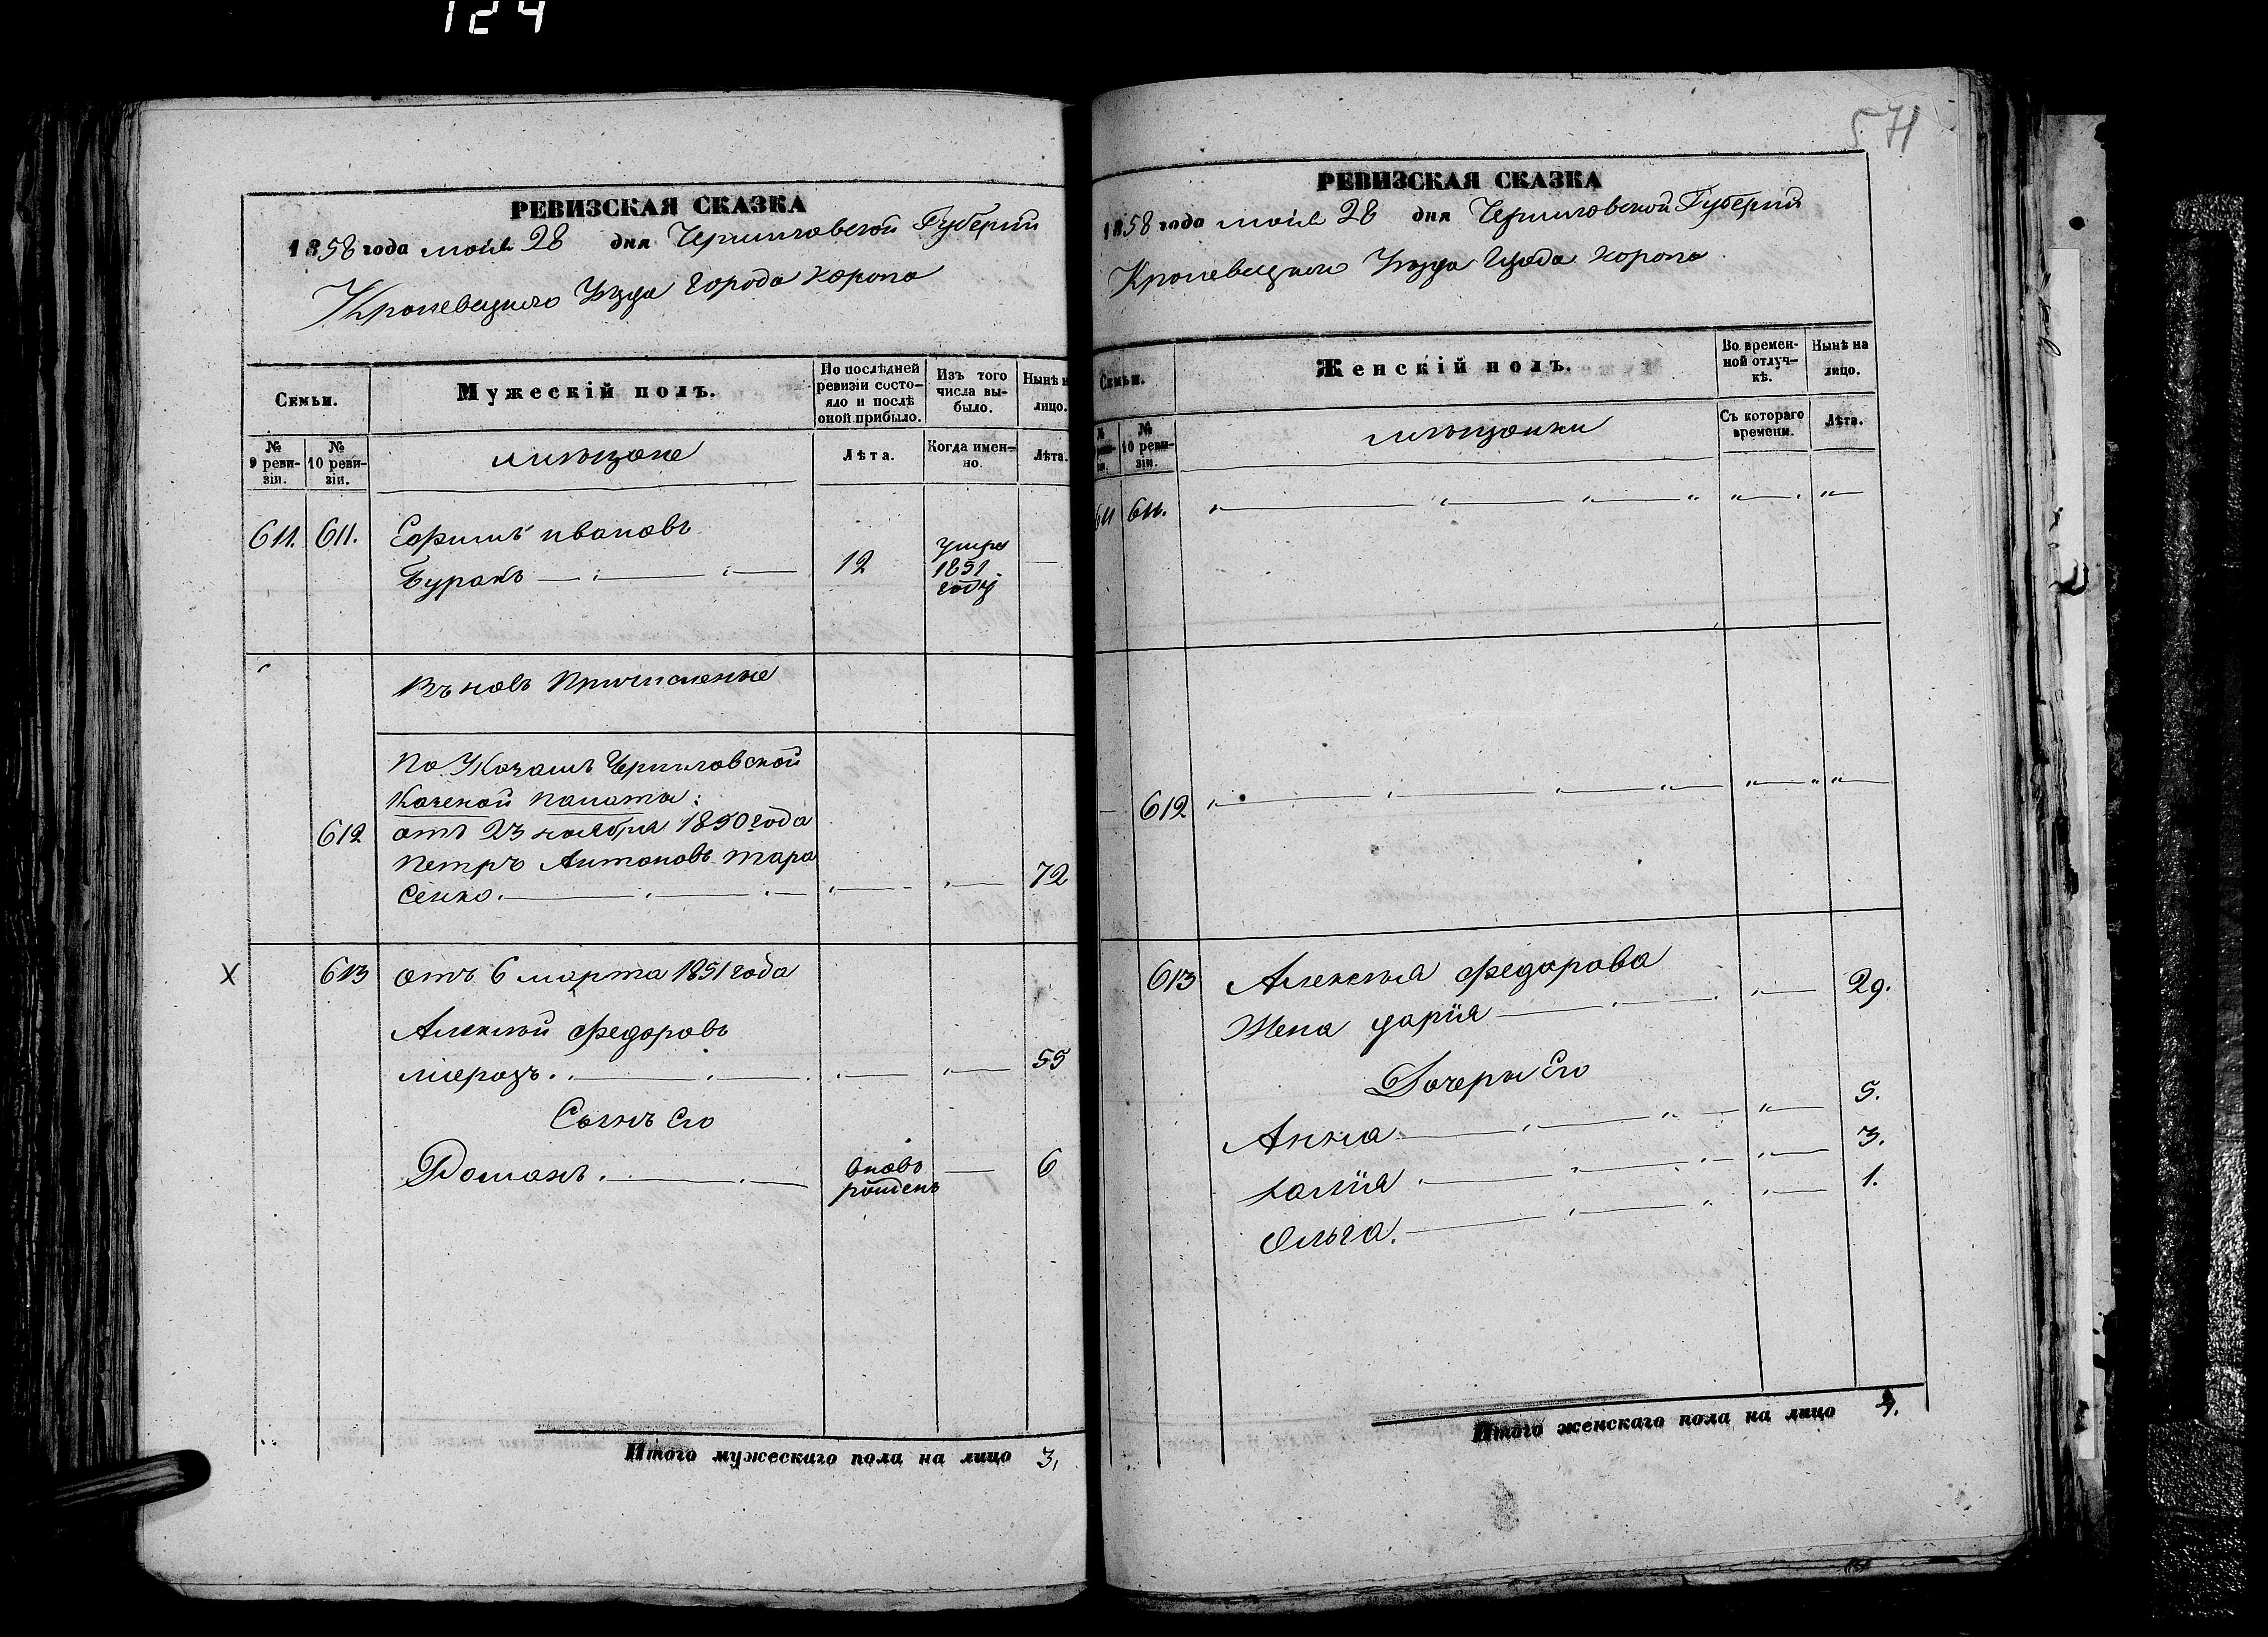 124
РЕВИЗСКАЯ СКАЗКА
1858 года мая 28 дня Черниговской Губерніи
Кролевецкаго Уѣзда города Коропа
Семьи.
Мужескій полъ.
По послѣдней ревизіи состо-
яло и послѣ
оной прибыло.
Изъ того
числа вы-
было.
Нынѣ н
лицо.
№
9 реви-
зіи.
№
10 реви-
зіи.
мѣщане
Лѣта.
Когда имен-
но.
Лѣта.
611. 611. Ефимъ Ивановъ
Буракъ 12
умре
1851
году
Въ новь Причисленные
По Указамъ Черниговской
Казеной Палаты:
612 отъ 23 ноября 1850 года
Петръ Антоновъ Тара
сенко. 72
Х 613 отъ 6 марта 1851 года
Алексѣй Федоровъ
Морозъ. 55
Сынъ Его
Романъ. вновь
рожденъ 6
Итого мужескаго пола на лицо 3,
571
РЕВИЗСКАЯ СКАЗКА
1858 года мая 28 дня Черниговской Губерніи
Кролевецкаго Уѣзда Города Коропа
Семьи.
Женскій полъ.
Во времен-
ной отлуч-
кѣ.
Нынѣ на
лицо.
№
10 реви-
зіи.
мѣщанки
Съ котораго
времени.
Лѣта.
611 611.
612
613 Алексѣя Федорова
Жена Дарія 29.
Дочери Его
Анна 5.
Юлія 3.
Ольга. 1.
Итого женскаго пола на лицо 4.